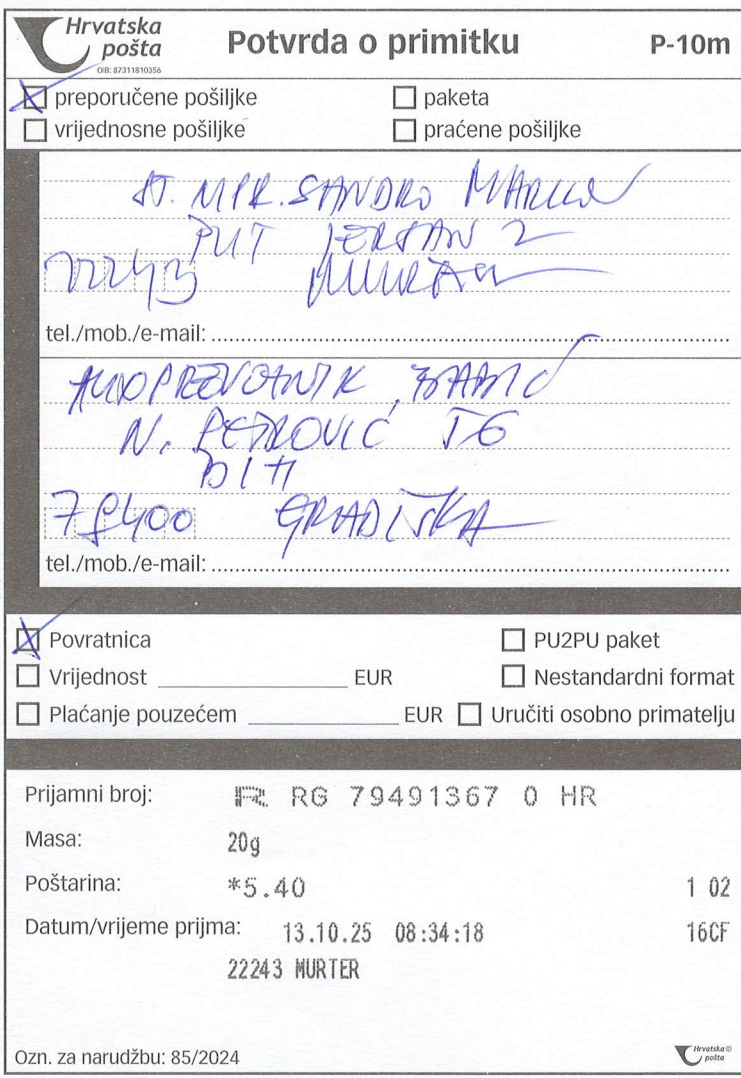 Hrvatska pošta
OIB: 87311810356
Potvrda o primitku
P-10m
preporučene pošiljke
paketa
vrijednosne pošiljke
praćene pošiljke
SANDRO
PUT JERSAN 2
22243
tel./mob./e-mail:
AUTOPREVOZNIK
N. PETROVIĆ
BIH
78400 GRADIŠKA
tel./mob./e-mail:
Povratnica
PU2PU paket
Vrijednost EUR
Nestandardni format
Plaćanje pouzećem EUR
Uručiti osobno primatelju
Prijamni broj: R RG 79491367 0 HR
Masa: 20g
Poštarina: *5.40 1 02
Datum/vrijeme prijma: 13.10.25 08:34:18 16CF
22243 MURTER
Ozn. za narudžbu: 85/2024
Hrvatska pošta